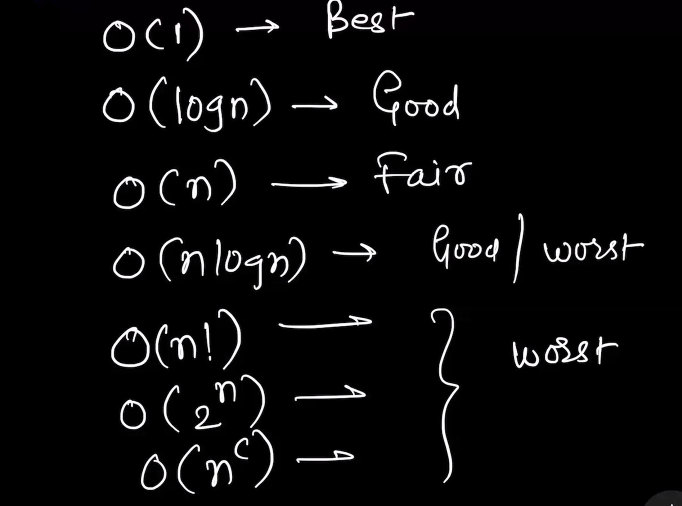 O(1) → Best
O(logn) → Good
O(n) → Fair
O(nlogn) → Good / worst
O(n!) →
O(2ⁿ) → } worst
O(nᶜ) →